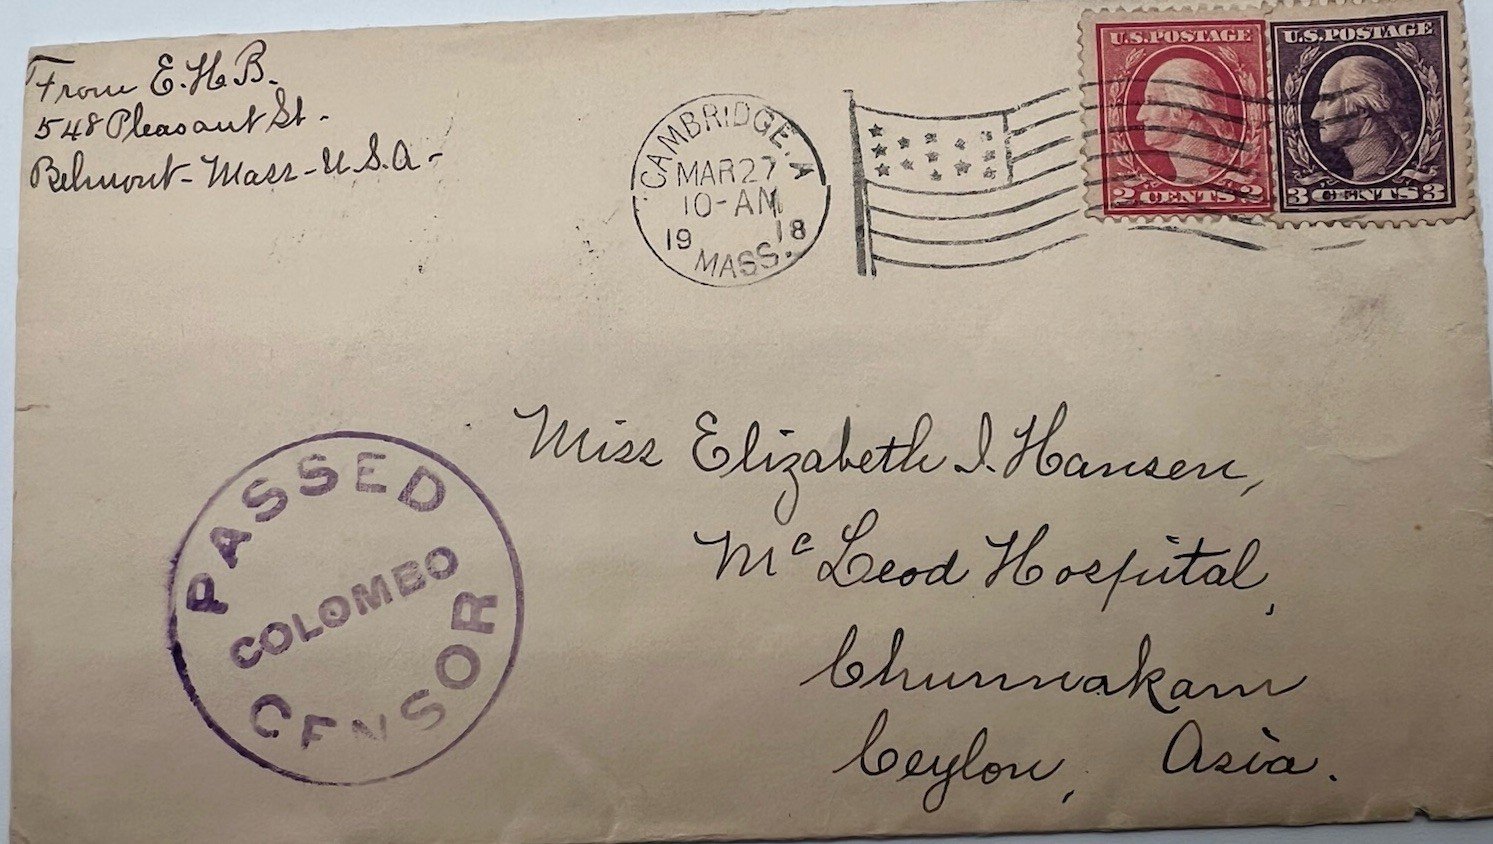 From E. H. B.
548 Pleasant St.
Belmont - Mass - U.S.A -
CAMBRIDGE. A
MAR 27
10-AM
19 18
MASS.
U.S. POSTAGE
2 CENTS 2
U.S. POSTAGE
3 CENTS 3
Miss Elizabeth I. Hansen,
Mc Leod Hospital,
Chunnakam
Ceylon, Asia.
PASSED
COLOMBO
CENSOR